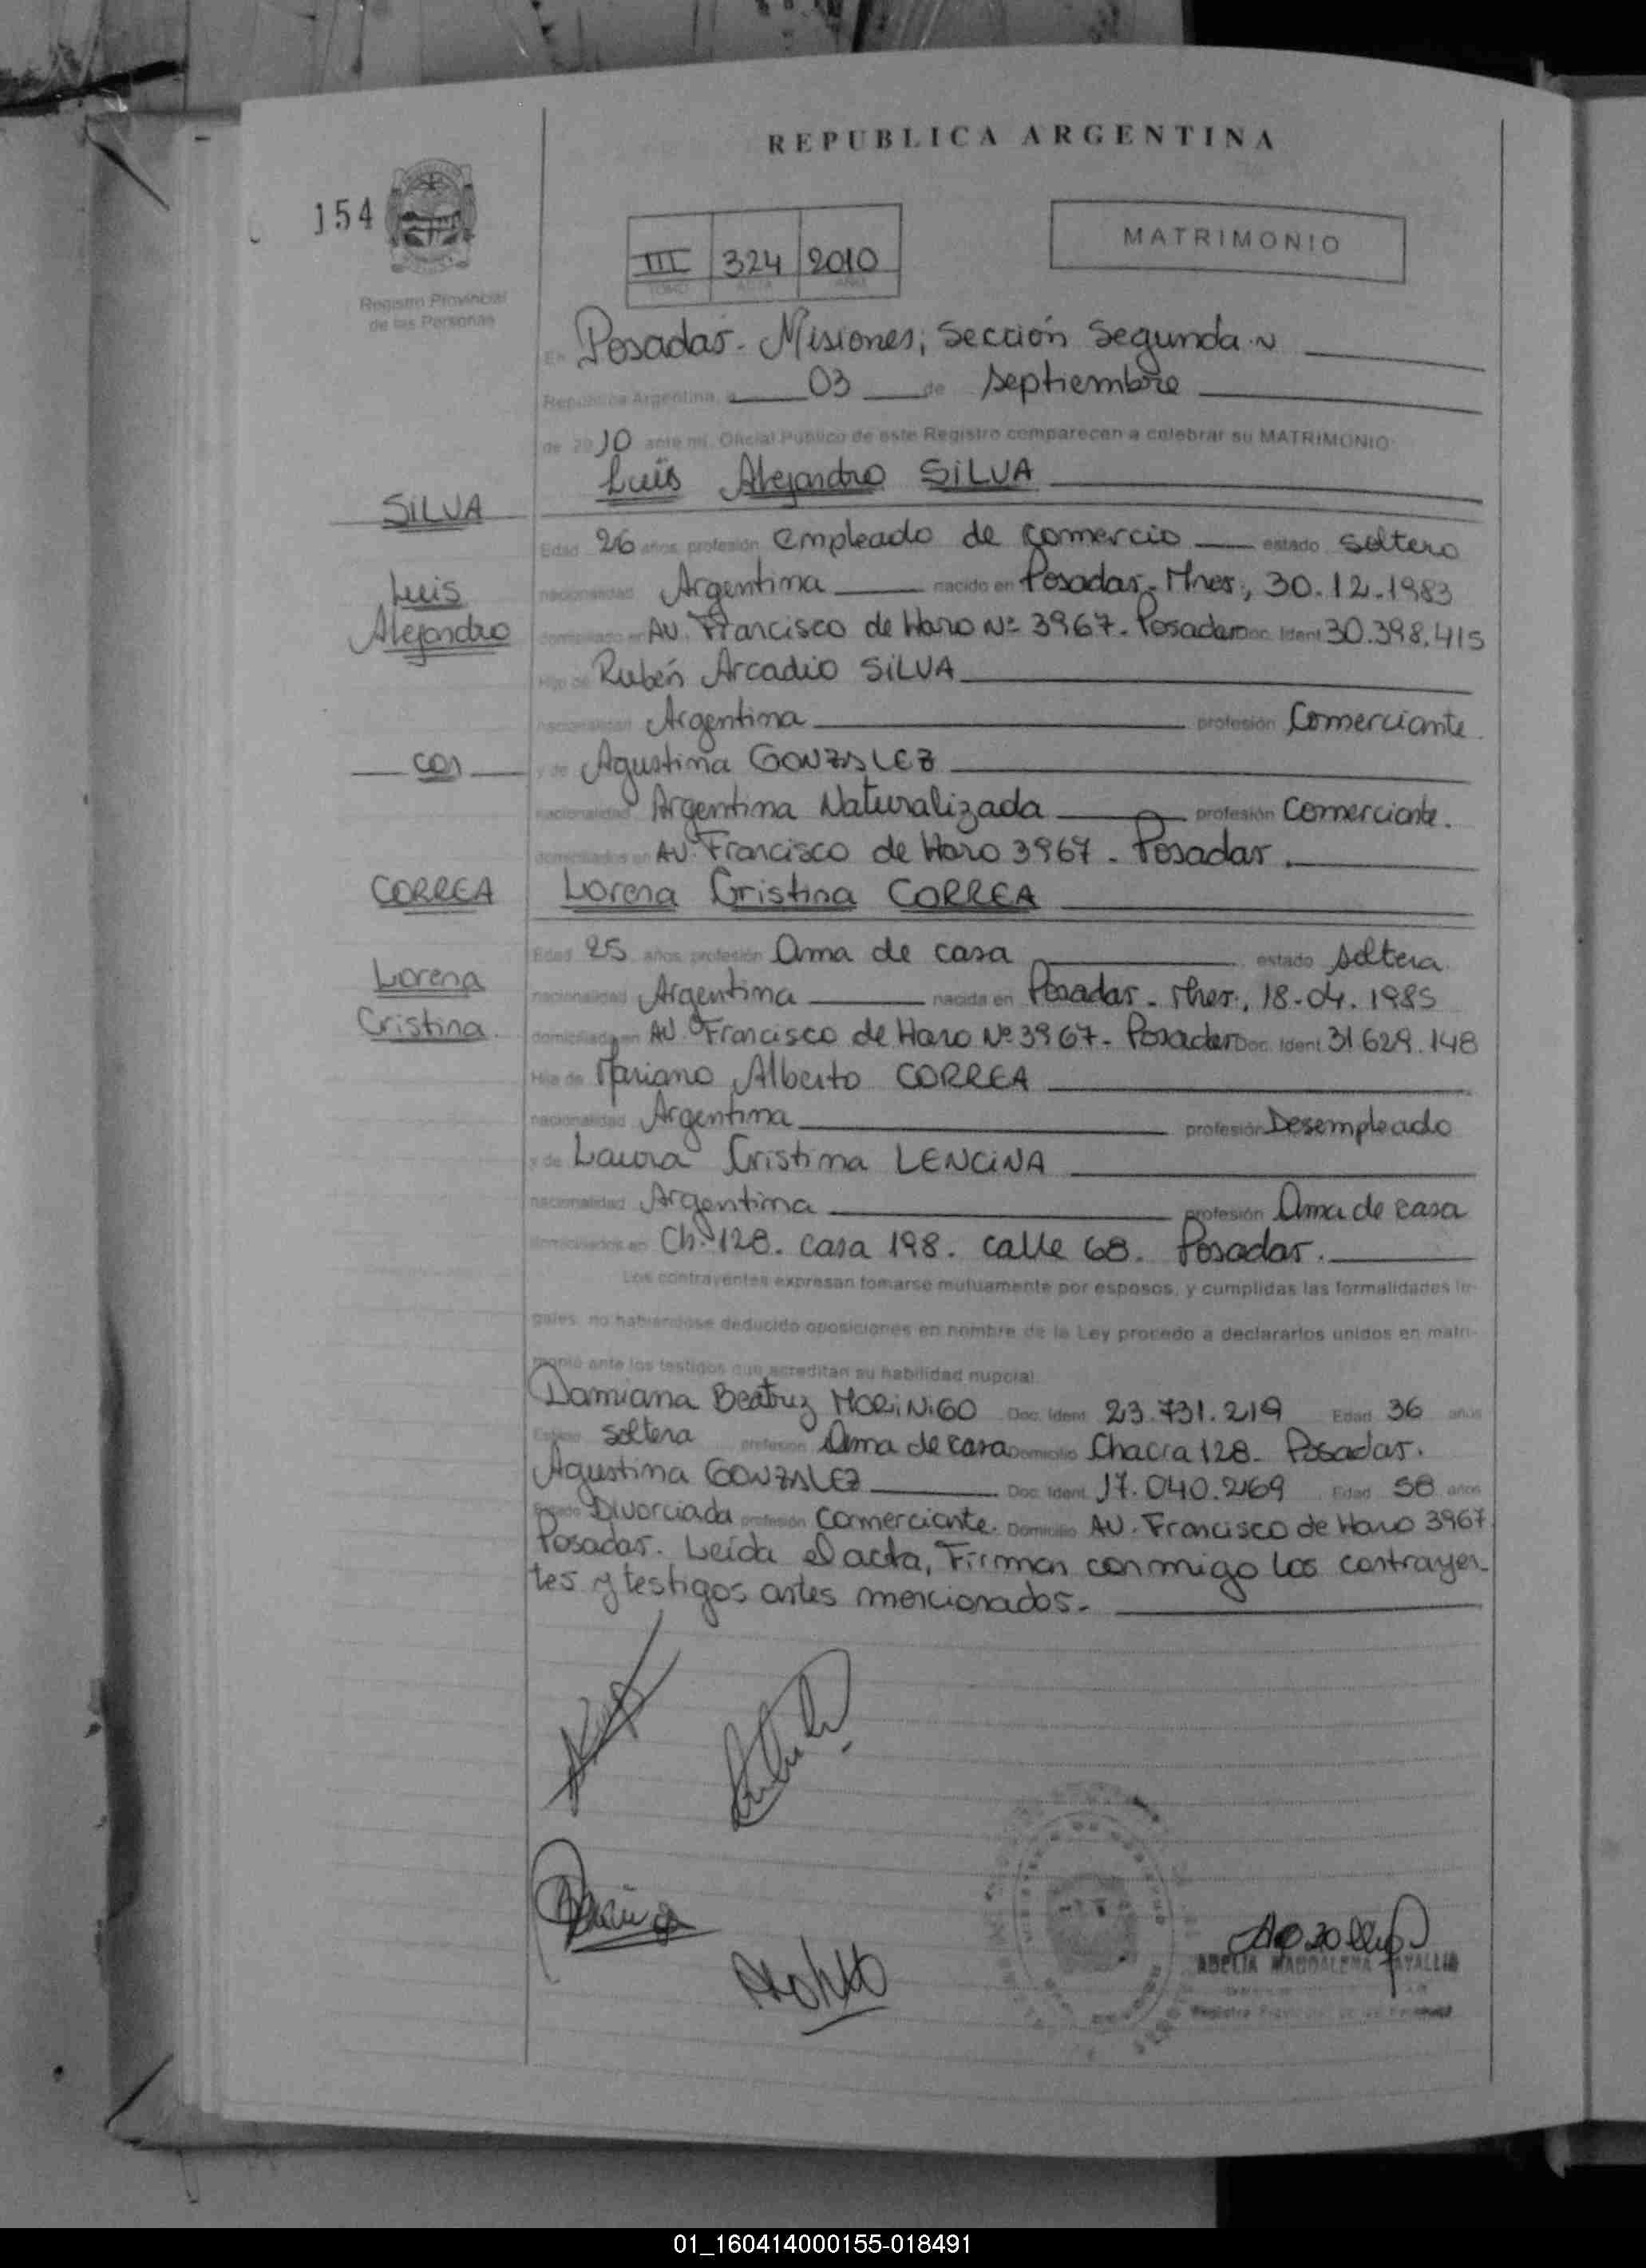 REPUBLICA ARGENTINA
154
MATRIMONIO
III 324 2010
TOMO ACTA AÑO
Registro Provincial
de las Personas
En Posadas - Misiones; Sección Segunda
República Argentina, a 03 de septiembre
de 2010 ante mí, Oficial Público de este Registro comparecen a celebrar su MATRIMONIO:
Luis Alejandro SILVA
SILVA
Edad 26 años profesión empleado de comercio estado soltero
Luis
nacionalidad Argentina nacido en Posadas - Mnes., 30.12.1983
Alejandro
domiciliado en AV. Francisco de Haro Nº 3967 - Posadas Doc. Ident 30.398.415
Hijo de Rubén Arcadio SILVA
nacionalidad Argentina profesión Comerciante
con
y de Agustina GONZALEZ
nacionalidad Argentina Naturalizada profesión comerciante.
domiciliados en AV. Francisco de Haro 3967 - Posadas.
CORREA
Lorena Cristina CORREA
Edad 25 años profesión Ama de casa estado soltera
Lorena
nacionalidad Argentina nacida en Posadas - Mnes., 18-04.1985
Cristina.
domiciliada en AV. Francisco de Haro Nº 3967 - Posadas Doc. Ident 31629.148
Hija de Mariano Alberto CORREA
nacionalidad Argentina profesión Desempleado
y de Laura Cristina LENCINA
nacionalidad Argentina profesión Ama de casa
domiciliados en Ch. 128. casa 198. calle 68. Posadas.
Los contrayentes expresan tomarse mutuamente por esposos, y cumplidas las formalidades le-
gales, no habiéndose deducido oposiciones en nombre de la Ley procedo a declararlos unidos en matri-
monio ante los testigos que acreditan su habilidad nupcial.
Damiana Beatriz MORINIGO Doc. Ident. 23.731.219 Edad 36 años
Estado soltera profesión Ama de casa Domicilio Chacra 128 - Posadas.
Agustina GONZALEZ Doc. Ident. 17.040.269 Edad 58 años
Estado Divorciada profesión Comerciante. Domicilio AV. Francisco de Haro 3967
Posadas. Leída el acta, Firman conmigo los contrayen-
tes y testigos antes mencionados.-
ADELIA MAGDALENA
Registro Provincial de las Personas
01_160414000155-018491